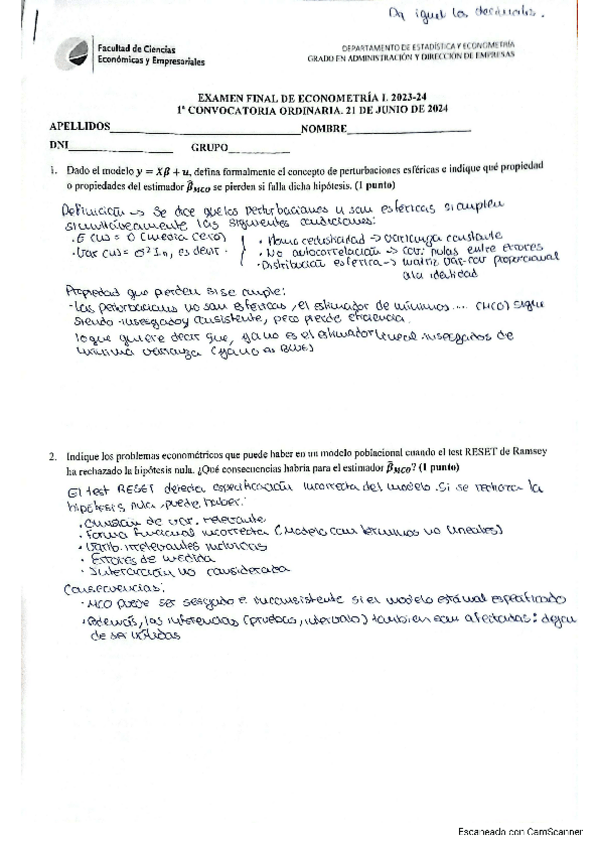 Da igual los decimales.
Facultad de Ciencias
Económicas y Empresariales
DEPARTAMENTO DE ESTADÍSTICA Y ECONOMETRÍA
GRADO EN ADMINISTRACIÓN Y DIRECCIÓN DE EMPRESAS
EXAMEN FINAL DE ECONOMETRÍA I. 2023-24
1ª CONVOCATORIA ORDINARIA. 21 DE JUNIO DE 2024
APELLIDOS NOMBRE
DNI GRUPO
1. Dado el modelo y = Xβ + u, defina formalmente el concepto de perturbaciones esféricas e indique qué propiedad
o propiedades del estimador β̂MCO se pierden si falla dicha hipótesis. (1 punto)
Definición → Se dice que las perturbaciones u son esféricas si cumplen
simultáneamente las siguientes condiciones:
· E(u) = 0 (media cero)
· Var(u) = σ² In, es decir
· Homocedasticidad → varianza constante
· No autocorrelación → cov. nulas entre errores
· Distribución esférica → matriz var-cov proporcional
a la identidad
Propiedad que pierden si se cumple:
- Las perturbaciones no son esféricas, el estimador de mínimos .... (MCO) sigue
siendo insesgado y consistente, pero pierde eficiencia.
lo que quiere decir que, ya no es el estimador lineal insesgados de
mínima varianza (ya no es BLUE)
2. Indique los problemas econométricos que puede haber en un modelo poblacional cuando el test RESET de Ramsey
ha rechazado la hipótesis nula. ¿Qué consecuencias habría para el estimador β̂MCO? (1 punto)
El test RESET detecta especificación incorrecta del modelo. Si se rechaza la
hipótesis nula, puede haber:
· Omisión de var. relevante
· Forma funcional incorrecta (Modelo con términos no lineales)
· Varib. irrelevantes incluidas
· Errores de medida
· Interacción no considerada
Consecuencias:
· MCO puede ser sesgado e inconsistente si el modelo está mal especificado
· Además, las inferencias (pruebas, intervalo) también son afectadas: dejan
de ser válidas
Escaneado con CamScanner